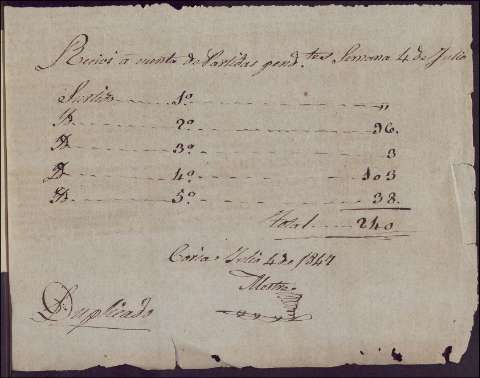 Recivi a cuenta de Partidas pend.tes Semana 4 de Julio
Surtido 1º "
Id. 2º 96.
Id. 3º 3
Id. 4º 103
Id. 5º 38.
Total 240
Julio 4 de 1847
Duplicado